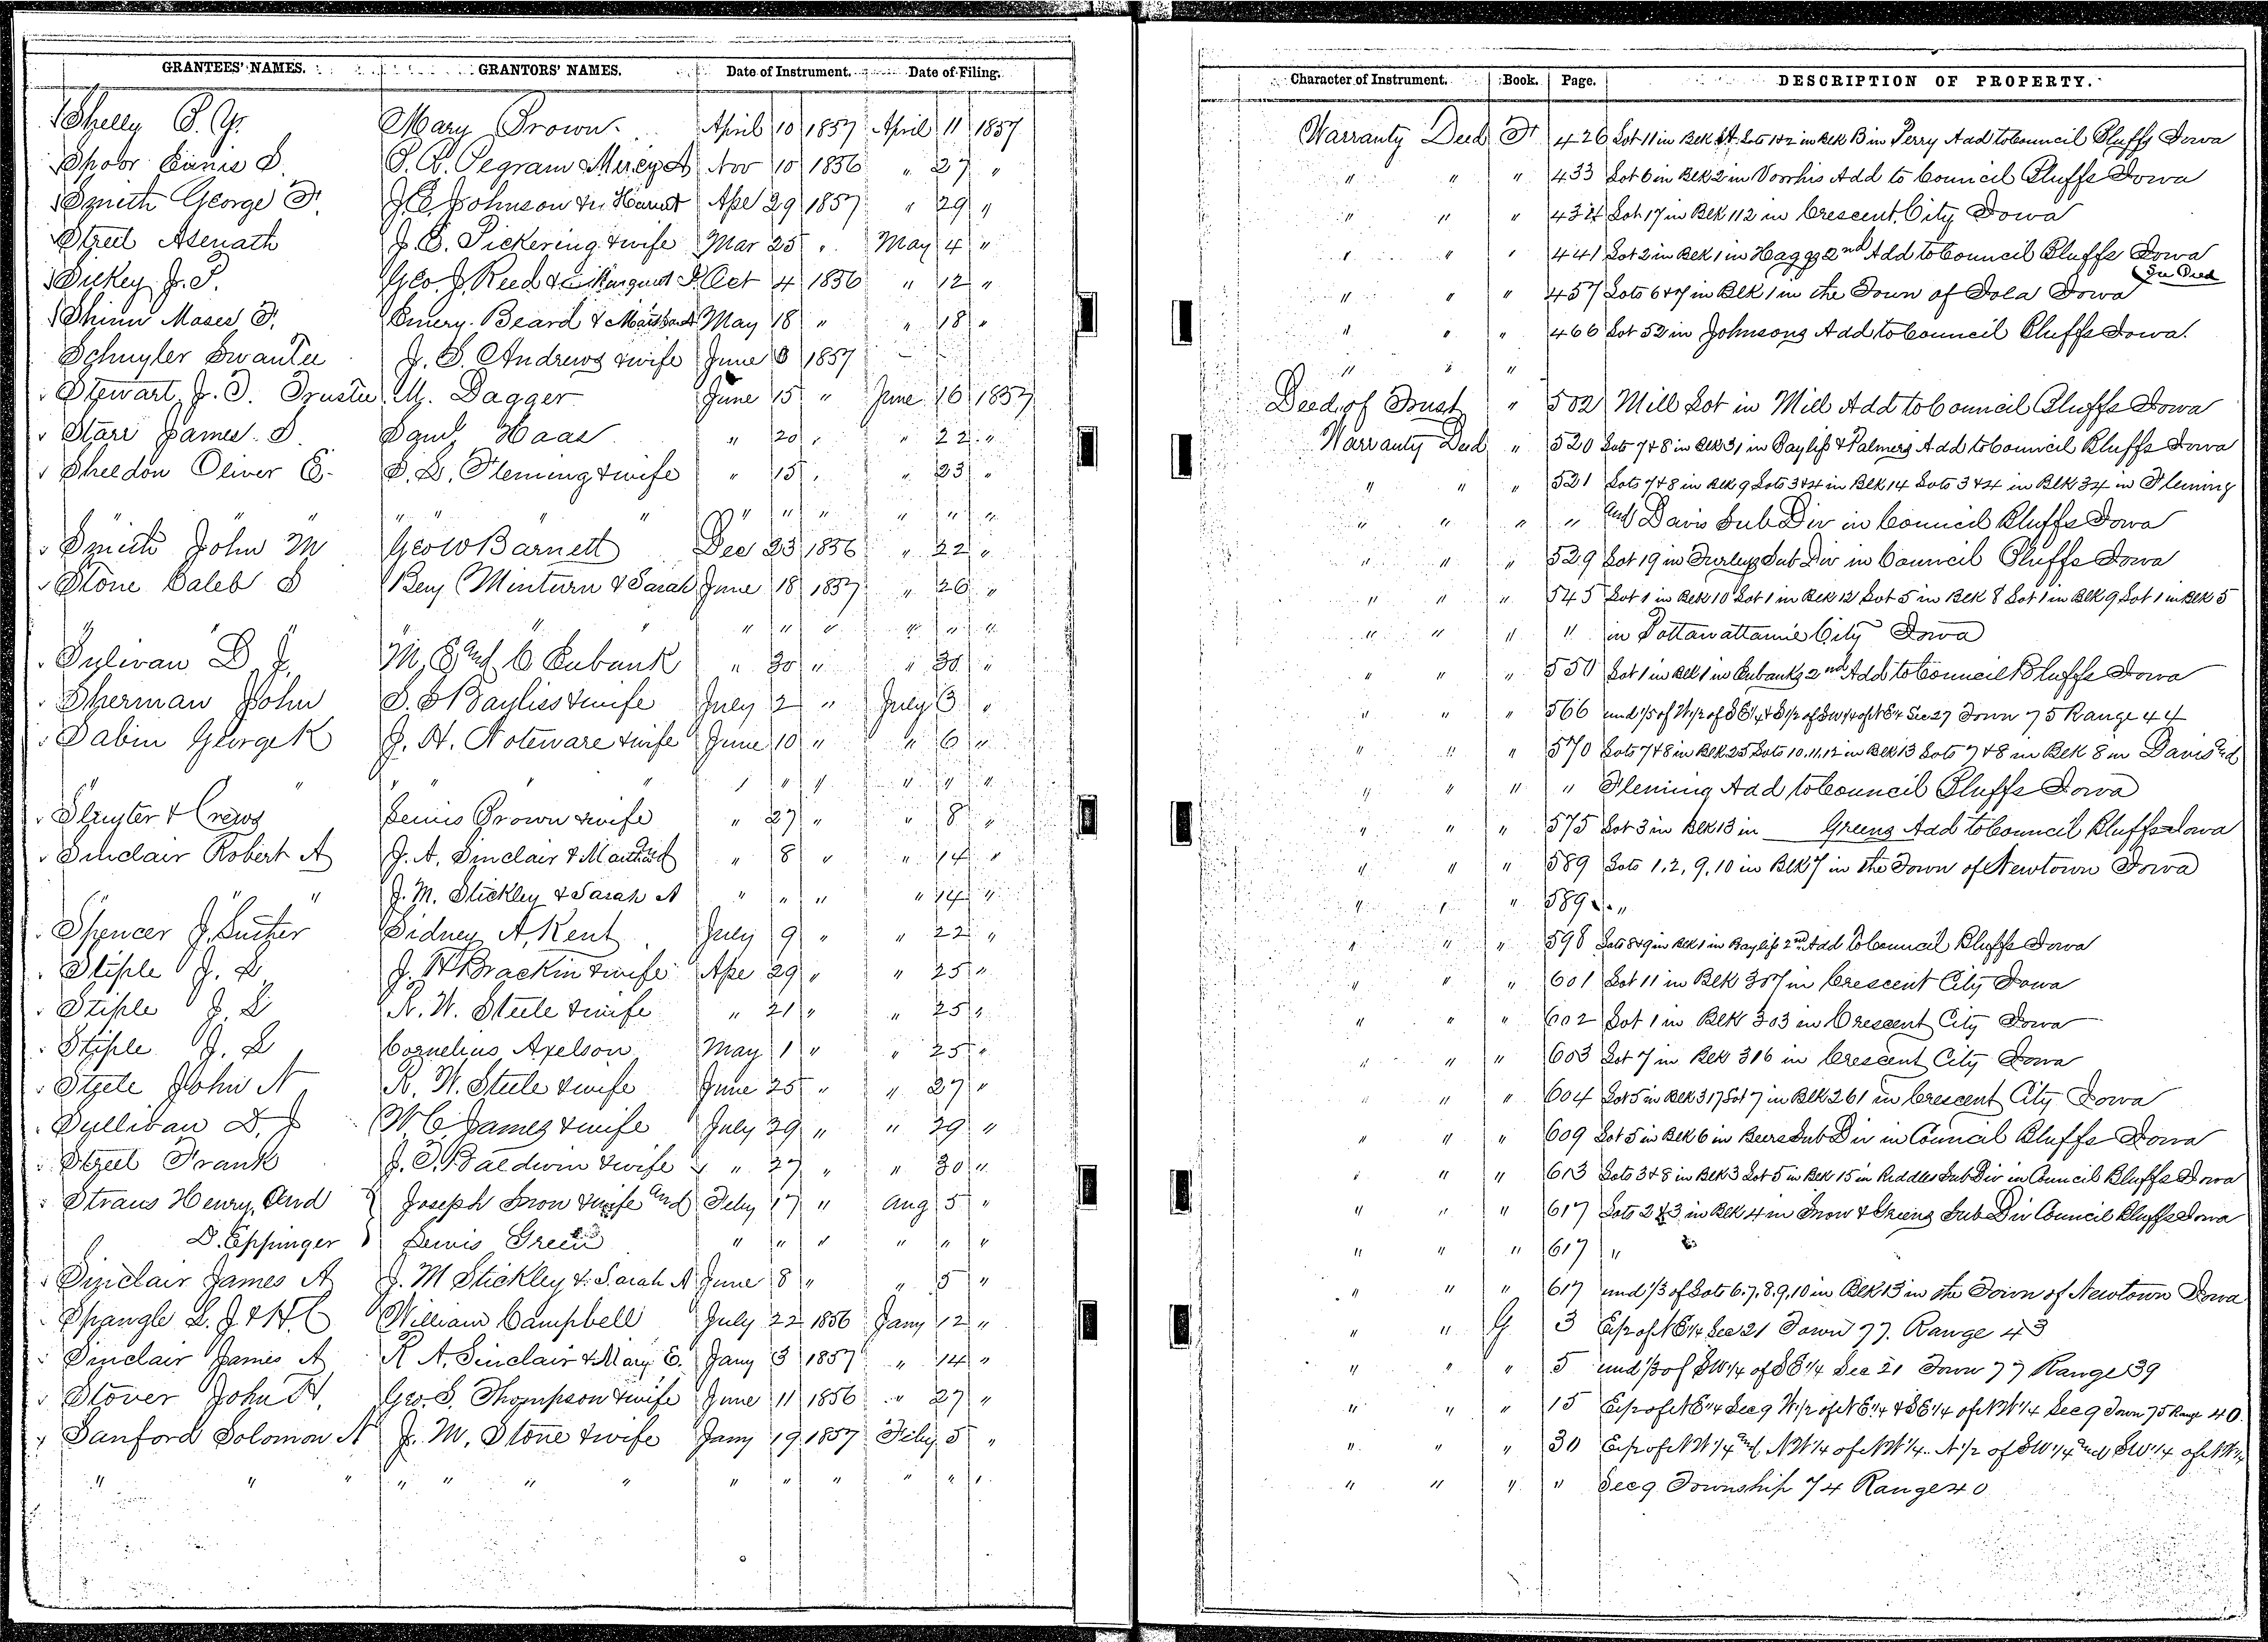 GRANTEES' NAMES. GRANTORS' NAMES. Date of Instrument. Date of Filing. Character of Instrument. Book. Page. DESCRIPTION OF PROPERTY.
Shelly Mary Brown April 10 1857 April 11 1857 Warranty Deed F 426 Lot 11 in Blk Lots 1 & 2 in Blk B in Perry Add to Council Bluffs Iowa
Pegram & Mercy A Nov 10 1856 " 27 " " " " 433 Lot 6 in Blk 2 in Voorhis Add to Council Bluffs Iowa
Smith George F. Johnson & Apl 29 1857 " 29 " " " " 434 Lot 17 in Blk 112 in Crescent City Iowa
Street Asenath Pickering & wife Mar 25 " May 4 " " " " 441 Lot 2 in Blk 1 in Haggs 2nd Add to Council Bluffs Iowa
Geo. J. Reed & Margaret Oct 4 1856 " 12 " " " " 457 Lots 6 & 7 in Blk 1 in the Town of Iola Iowa
Shinn Moses F. Emery Beard & May 18 " " 18 " " " " 466 Lot 52 in Johnsons Add to Council Bluffs Iowa.
Schuyler J. S. Andrews & wife June 1857 " " "
Stewart J. T. Trustee M. Dagger June 15 " June 16 1857 Deed of Trust " 502 Mill Lot in Mill Add to Council Bluffs Iowa
Starr James Saml Haas " 20 " " 22 " Warranty Deed " 520 Lots 7 & 8 in Blk 31 in Bayliss & Palmers Add to Council Bluffs Iowa
Sheldon Oliver C. Fleming & wife " 15 " " 23 " " " " 521 Lots 7 & 8 in Blk 9 Lots 3 & 4 in Blk 14 Lots 3 & 4 in Blk 34 in Fleming
" " " " " " " " " " " " " and Davis Sub Div in Council Bluffs Iowa
Smith John M Geo W Barnett Dec 23 1856 " 22 " " " " 529 Lot 19 in Turleys Sub Div in Council Bluffs Iowa
Stone Caleb S Benj Minturn & Sarah June 18 1857 " 26 " " " " 545 Lot 1 in Blk 10 Lot 1 in Blk 12 Lot 5 in Blk 8 Lot 1 in Blk 9 Lot 1 in Blk 5
" " " " " " " " " " " " " in Pottawattamie City Iowa
Sylivan D. J. M. E. and C Eubank " 30 " " 30 " " " " 550 Lot 1 in Blk 1 in Eubanks 2nd Add to Council Bluffs Iowa
Sherman John S. S Bayliss & wife July 2 " July 3 " " " " 566 und 1/5 of W 1/2 of SE 1/4 & S 1/2 of SW 1/4 of NE 1/4 Sec 27 Town 75 Range 44
Sabin George K J. H. Noteware & wife June 10 " " 6 " " " " 570 Lots 7 & 8 in Blk 25 Lots 10.11.12 in Blk 13 Lots 7 & 8 in Blk 8 in Davis and
" " " " " " " " " " " " Fleming Add to Council Bluffs Iowa
Sluyter & Crews Lewis Brown & wife " 27 " " 8 " " " " 575 Lot 3 in Blk 13 in Greens Add to Council Bluffs Iowa
Sinclair Robert A J. A. Sinclair & " 8 " " 14 " " " " 589 Lots 1, 2, 9, 10 in Blk 7 in the Town of Newtown Iowa
" " J. M. Stickley & Sarah A " " " " 14 " " " " 589 " "
Spencer J. Luther Sidney A. Kent July 9 " " 22 " " " " 598 Lots 8 & 9 in Blk 1 in Bayliss 2nd Add to Council Bluffs Iowa
Stiple J. L J. H Brackin & wife Apl 29 " " 25 " " " " 601 Lot 11 in Blk 307 in Crescent City Iowa
Stiple J. L R. W. Steele & wife " 21 " " 25 " " " " 602 Lot 1 in Blk 303 in Crescent City Iowa
Stiple J. L Cornelius Axelson May 1 " " 25 " " " " 603 Lot 7 in Blk 316 in Crescent City Iowa
Steele John N R. W. Steele & wife June 25 " " 27 " " " " 604 Lot 5 in Blk 317 Lot 7 in Blk 261 in Crescent City Iowa
Sullivan D. J W. C. James & wife July 29 " " 29 " " " " 609 Lot 5 in Blk 6 in Beers Sub Div in Council Bluffs Iowa
Street Frank J. T. Baldwin & wife " 27 " " 30 " " " " 613 Lots 3 & 8 in Blk 3 Lot 5 in Blk 15 in Riddles Sub Div in Council Bluffs Iowa
Straus Henry, and Joseph Snow & wife and Feby 17 " Aug 5 " " " " 617 Lots 2 & 3 in Blk 4 in Snow & Greens Sub Div Council Bluffs Iowa
D. Eppinger Lewis Green " " " " " " " " " 617 "
Sinclair James A J. M Stickley & Sarah A June 8 " " 5 " " " " 617 und 1/3 of Lots 6.7.8.9.10 in Blk 13 in the Town of Newtown Iowa
Spangle L. J & H. C William Campbell July 22 1856 Jany 12 " " " G 3 E 1/2 of NE 1/4 Sec 21 Town 77. Range 43
Sinclair James A R. A. Sinclair & Mary E. Jany 3 1857 " 14 " " " " 5 und 1/3 of SW 1/4 of SE 1/4 Sec 21 Town 77 Range 39
Stover John H. Geo. S. Thompson & wife June 11 1856 " 27 " " " " 15 E 1/2 of NE 1/4 Sec 9 W 1/2 of NE 1/4 & SE 1/4 of NW 1/4 Sec 9 Town 75 Range 40
Sanford Solomon N J. M. Stone & wife Jany 19 1857 Feby 5 " " " " 30 E 1/2 of NW 1/4 and NW 1/4 of NW 1/4. N 1/2 of SW 1/4 and SW 1/4 of NW 1/4
" " " " " " " " " " " " " " " " " " Sec 9 Township 74 Range 40